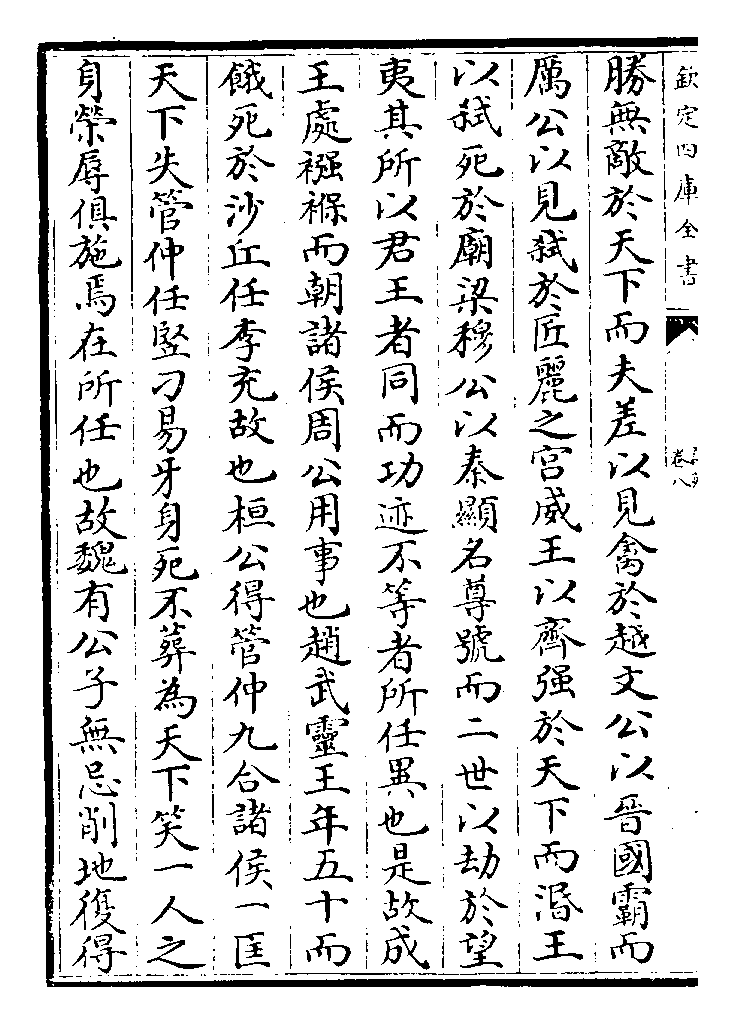 欽定四庫全書
卷八
勝無敵於天下而夫差以見禽於越文公以晉國霸而
厲公以見弒於匠麗之宫威王以齊强於天下而湣王
以弑死於廟梁穆公以秦顯名尊號而二世以劫於望
夷其所以君王者同而功迹不等者所任異也是故成
王處襁褓而朝諸侯周公用事也趙武靈王年五十而
餓死於沙丘任李充故也桓公得管仲九合諸侯一匡
天下失管仲任竪刁易牙身死不葬為天下笑一人之
身榮辱俱施焉在所任也故魏有公子無忌削地復得